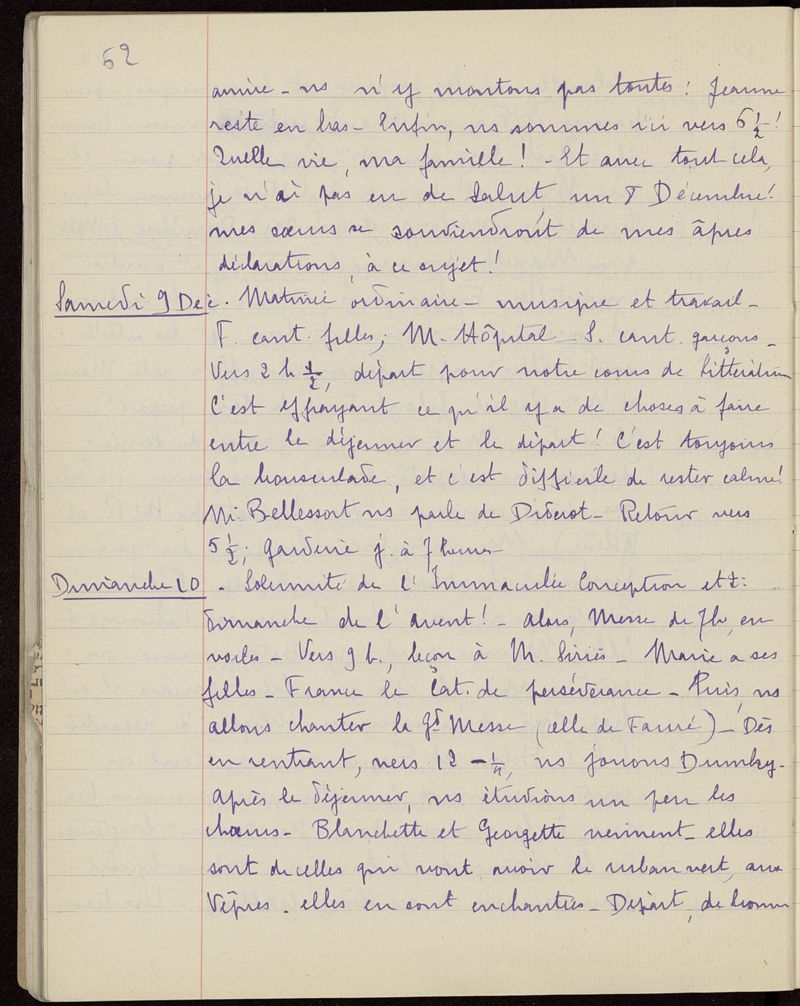 62
arrive - ns n'y montons pas toutes : Jeanne
reste en bas - Enfin, ns sommes ici vers 6 1/2 !
Quelle vie, ma famille ! - Et avec tout cela,
je n'ai pas eu de Salut un 8 Décembre !
mes sœurs se souviendront de mes âpres
déclarations, à ce sujet !
Samedi 9 Déc. Matinée ordinaire - musique et travail -
F. cant. filles ; M. Hôpital - S. cant. garçons -
Vers 2 h 1/2, départ pour notre cours de Littérature
C'est effrayant ce qu'il y a de choses à faire
entre le déjeuner et le départ ! C'est toujours
la bousculade, et c'est difficile de rester calme !
M. Bellessort ns parle de Diderot - Retour vers
5 1/2 ; garderie j. à 7 heures -
Dimanche 10. - Solennité de l'Immaculée Conception et 2:
dimanche de l'avent ! - Alors, Messe de 7h, en
voiles - Vers 9 h., leçon à M. - Marie a ses
filles - France le Cat. de persévérance - Puis, ns
allons chanter la Gd Messe (celle de Fauré) - Dès
en rentrant, vers 12 - 1/4, ns jouons Dumky -
après le déjeuner, ns étudions un peu les
chœurs - Blanchette et Georgette viennent - elles
sont de celles qui vont avoir le ruban vert, aux
Vêpres - elles en sont enchantées - Départ, de bonne